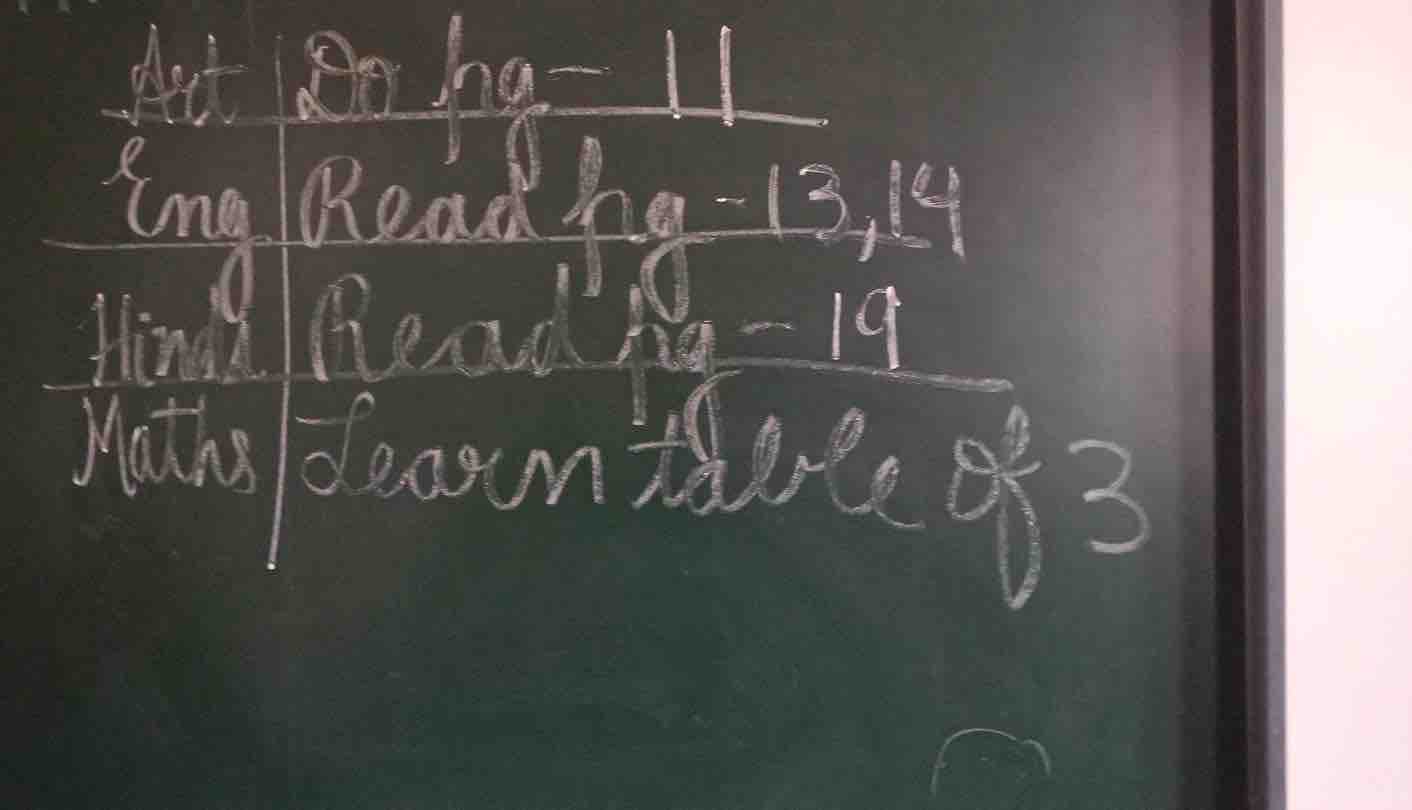 Art Do pg - 11
Eng Read pg - 13,14
Hindi Read pg - 19
Maths Learn table of 3